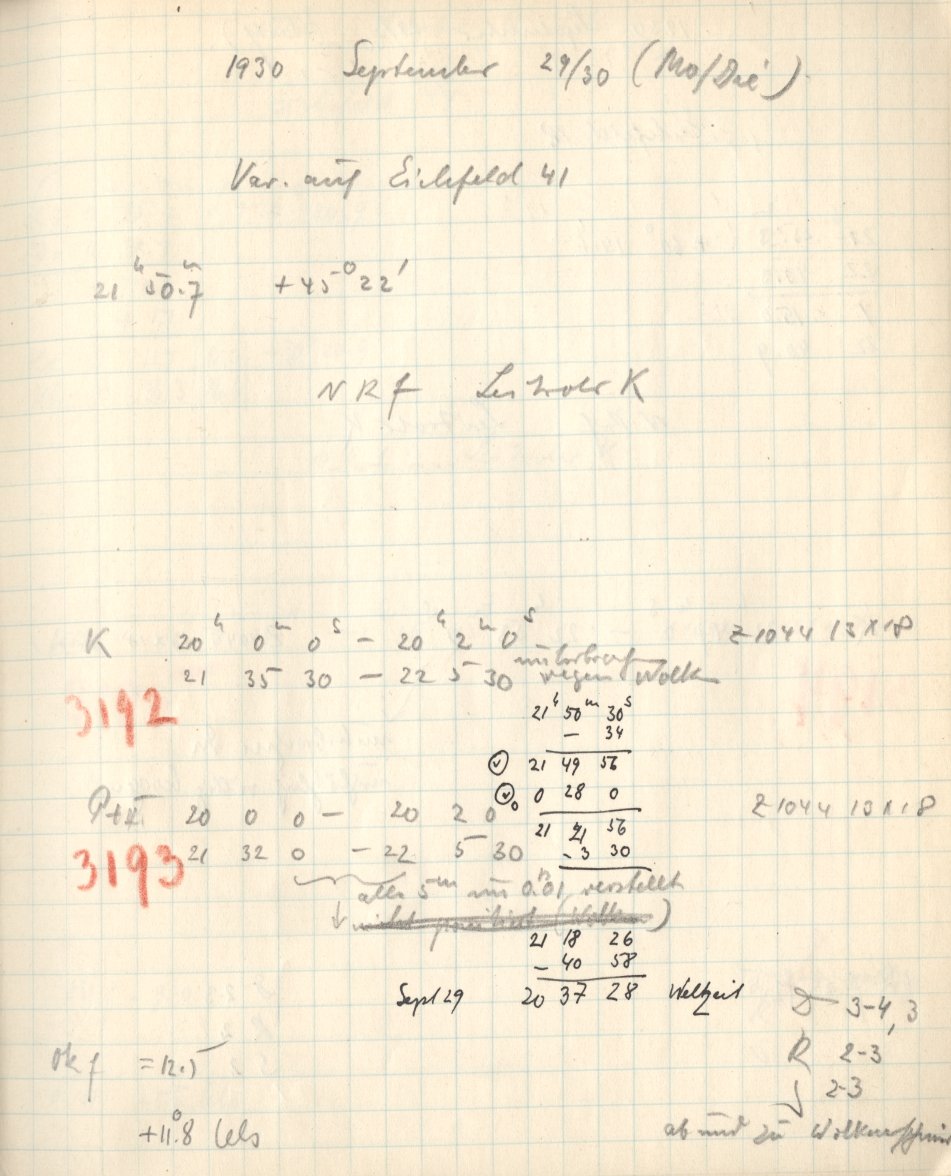 1930 September 29/30 (Mo/Die)
Var. auf Eichfeld 41
21ʰ 50.ᵐ7 +45° 22'
NRf K
K 20ʰ 0ᵐ 0ˢ – 20ʰ 2ᵐ 0ˢ Z 1044 13 x 18
21 35 30 – 22 5 30 wegen Wolken
3192
21ʰ 50ᵐ 30ˢ
– 34
21 49 56
0 28 0
Z 1044 13 x 18
20 0 0 – 20 2 0
21 21 56
3193
21 32 0 – 22 5 30
– 3 30
alle 5ᵐ um 0.01 verstellt
21 18 26
– 40 58
Sept 29 20 37 28 Weltzeit
D 3-4, 3
R 2-3
2-3
Okf = 12.5
+11.°8 Cels
ab und zu